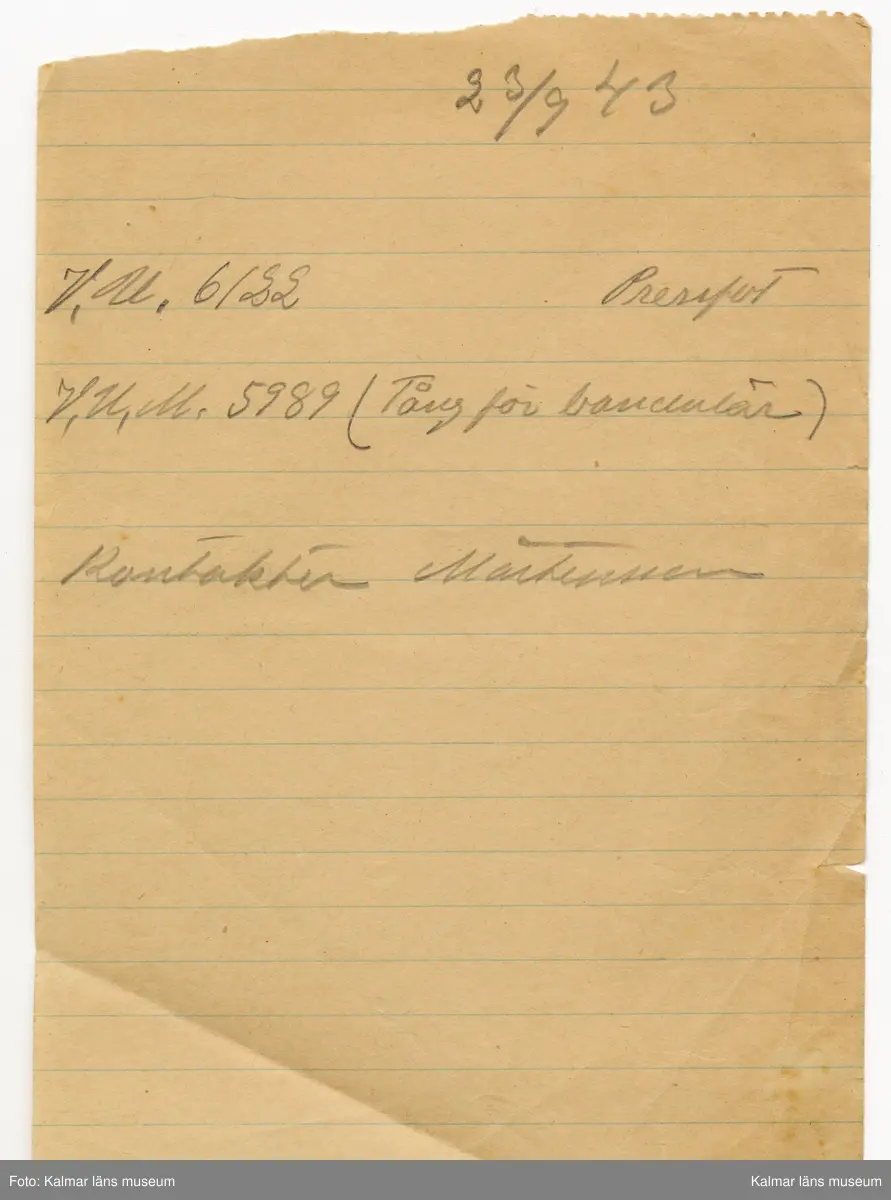 23/9 43
V, M. 6122 Pressfot
V, U, M. 5989 (Tång för
Kontakter Mårtensson
Foto: Kalmar läns museum Kalmar läns museum